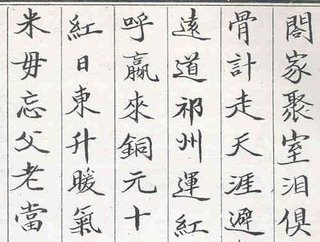 閤家聚室泪俱
骨計走天涯避
遠道祁州運紅
呼嬴來銅元十
紅日東升暖氣
米毋忘父老當